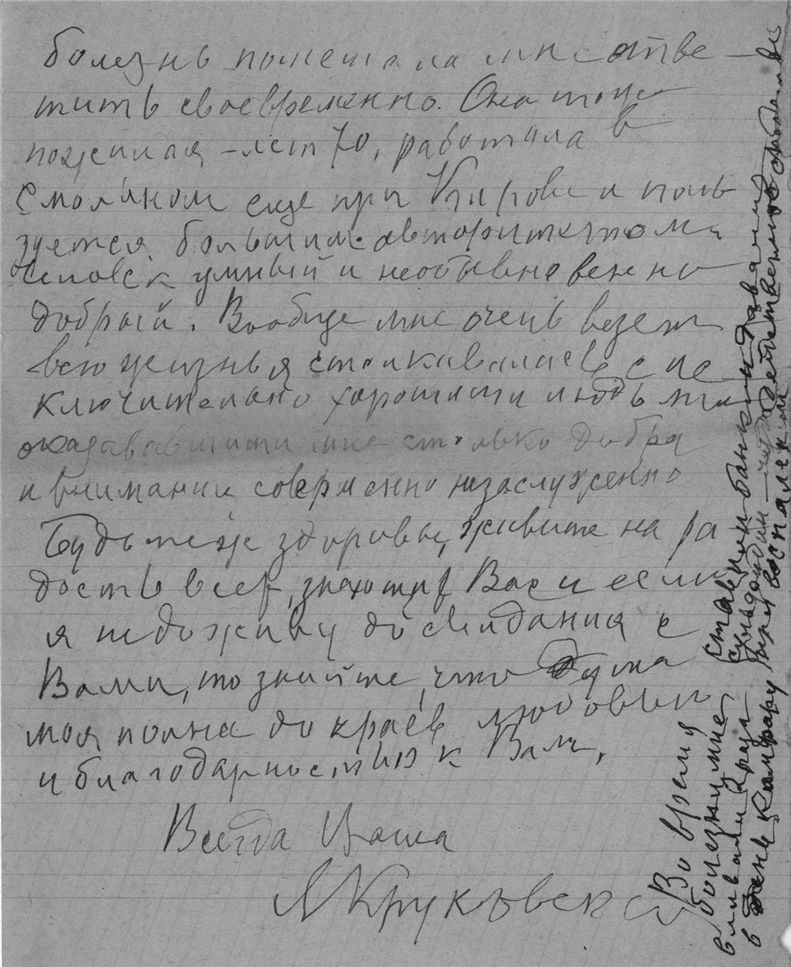 болезнь помешала мне отве-
тить своевременно. Она тоже
пожилая – лет 70, работала в
Смольном еще при Кирове и поль
зуется большим авторитетом
Человек умный и необыкновенно
добрый. Вообще мне очень везет
всю жизнь я сталкивалась с ис
ключительно хорошими людьми
оказавшими мне столько добра
и внимания совершенно незаслуженно
Будьте ж здоровы, живите на ра
дость всех, знающих Вас и если
я не доживу до свидания с
Вами, то знайте, что душа
моя полна до краев любовью
и благодарностью к Вам.
Всегда Ваша
А Круковская
Во время
болезни мне ставили банки и давали
вливали 2 раза
в день камфару при воспалении